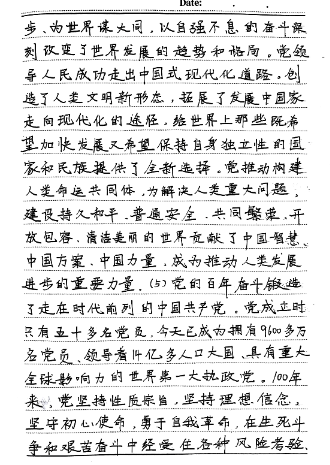 Date:
步、为世界谋大同，以自强不息的奋斗深
刻改变了世界发展的趋势和格局。党领
导人民成功走出中国式现代化道路，创
造了人类文明新形态，拓展了发展中国家
走向现代化的途径，给世界上那些既希
望加快发展又希望保持自身独立性的国
家和民族提供了全新选择。党推动构建
人类命运共同体，为解决人类重大问题，
建设持久和平、普遍安全、共同繁荣、开
放包容、清洁美丽的世界贡献了中国智慧、
中国方案、中国力量，成为推动人类发展
进步的重要力量。(5)党的百年奋斗锻造
了走在时代前列的中国共产党。党成立时
只有五十多名党员，今天已成为拥有9600多万
名党员、领导着14亿多人口大国、具有重大
全球影响力的世界第一大执政党。100年
来，党坚持性质宗旨，坚持理想信念，
坚守初心使命，勇于自我革命，在生死斗
争和艰苦奋斗中经受住各种风险考验、